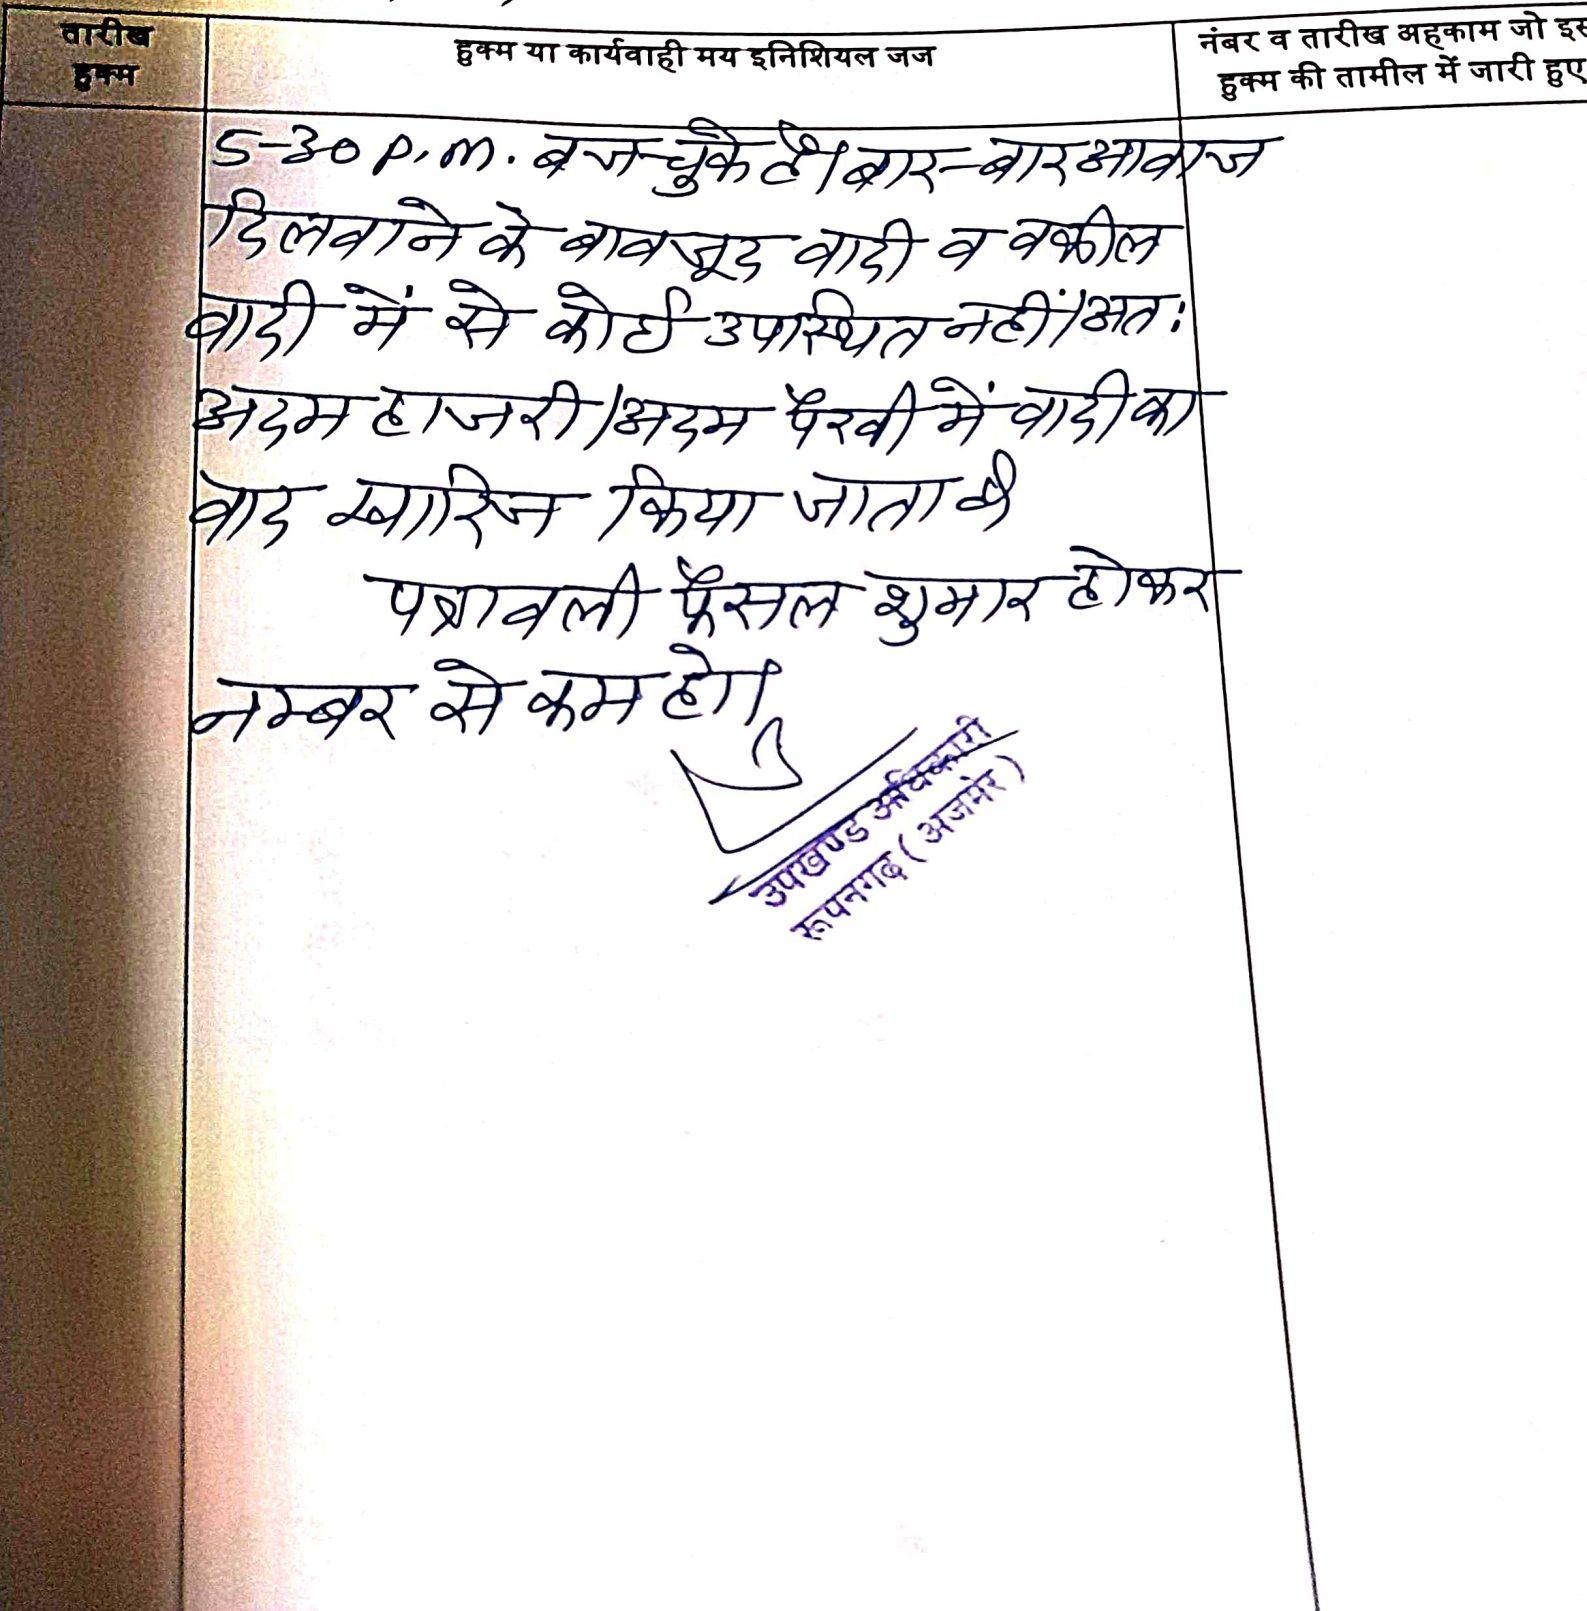 तारीख
हुक्म
हुक्म या कार्यवाही मय इनिशियल जज
नंबर व तारीख अहकाम जो इस
हुक्म की तामील में जारी हुए
5-30 P.M. बज चुके है। बार-बार आवाज
दिलवाने के बावजूद वादी व वकील
वादी में से कोई उपस्थित नहीं। अतः
अदम हाजरी/अदम पैरवी में वादी का
वाद खारिज किया जाता है
पत्रावली फैसल शुमार होकर
नम्बर से कम हो।
उपखण्ड अधिकारी
रूपनगढ (अजमेर)